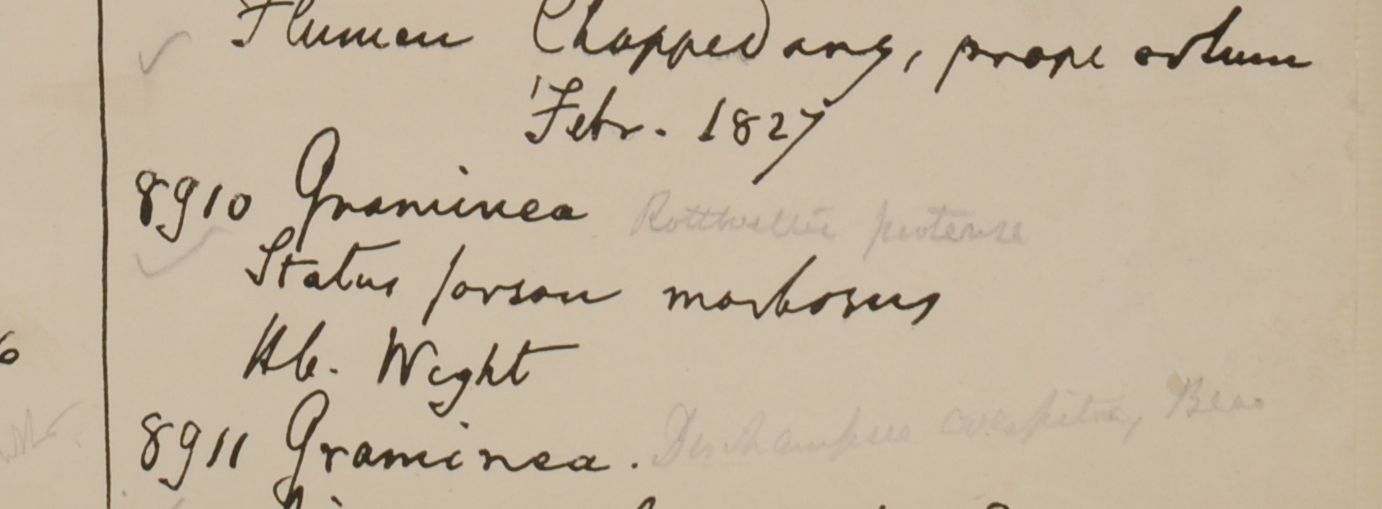 Flumen Chappedong, prope ostium
Febr. 1827
8910 Graminea
Status forsan morbosus
Hb. Wight
8911 Graminea. Deschampsia caespitosa, Beau